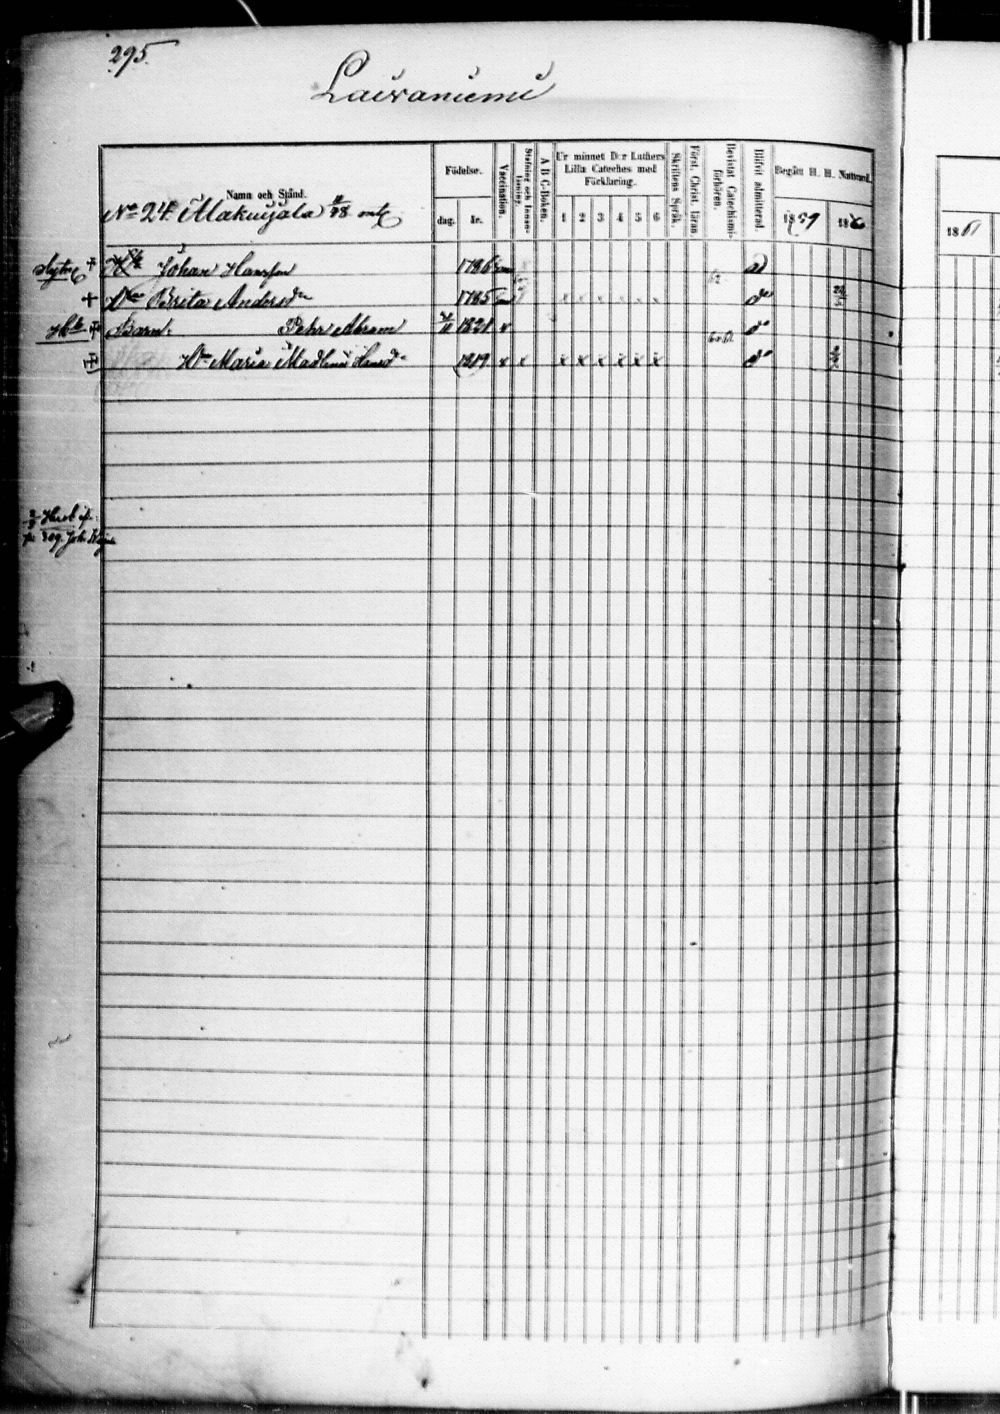 295.
Laivaniemi
Namn och Stånd.
Födelse.
dag. år.
Vaccination.
Stafning och Innanläsning.
A B C-Boken.
Ur minnet D:r Luthers Lilla Cateches med Förklaring.
1 2 3 4 5 6
Skriftens Språk.
Först. Christ. läran.
Bevistat Catechismi-förhören.
Blifvit admitterad.
Begått H. H. Nattvard.
1859 1860
1861
No 24. Makuujala mtl
Johan Hansson 1786
Brita Andersdr 1785
Barn: Pehr Abram 1821 x
Maria Madlena Hansdr 1819 x x x x x x x x